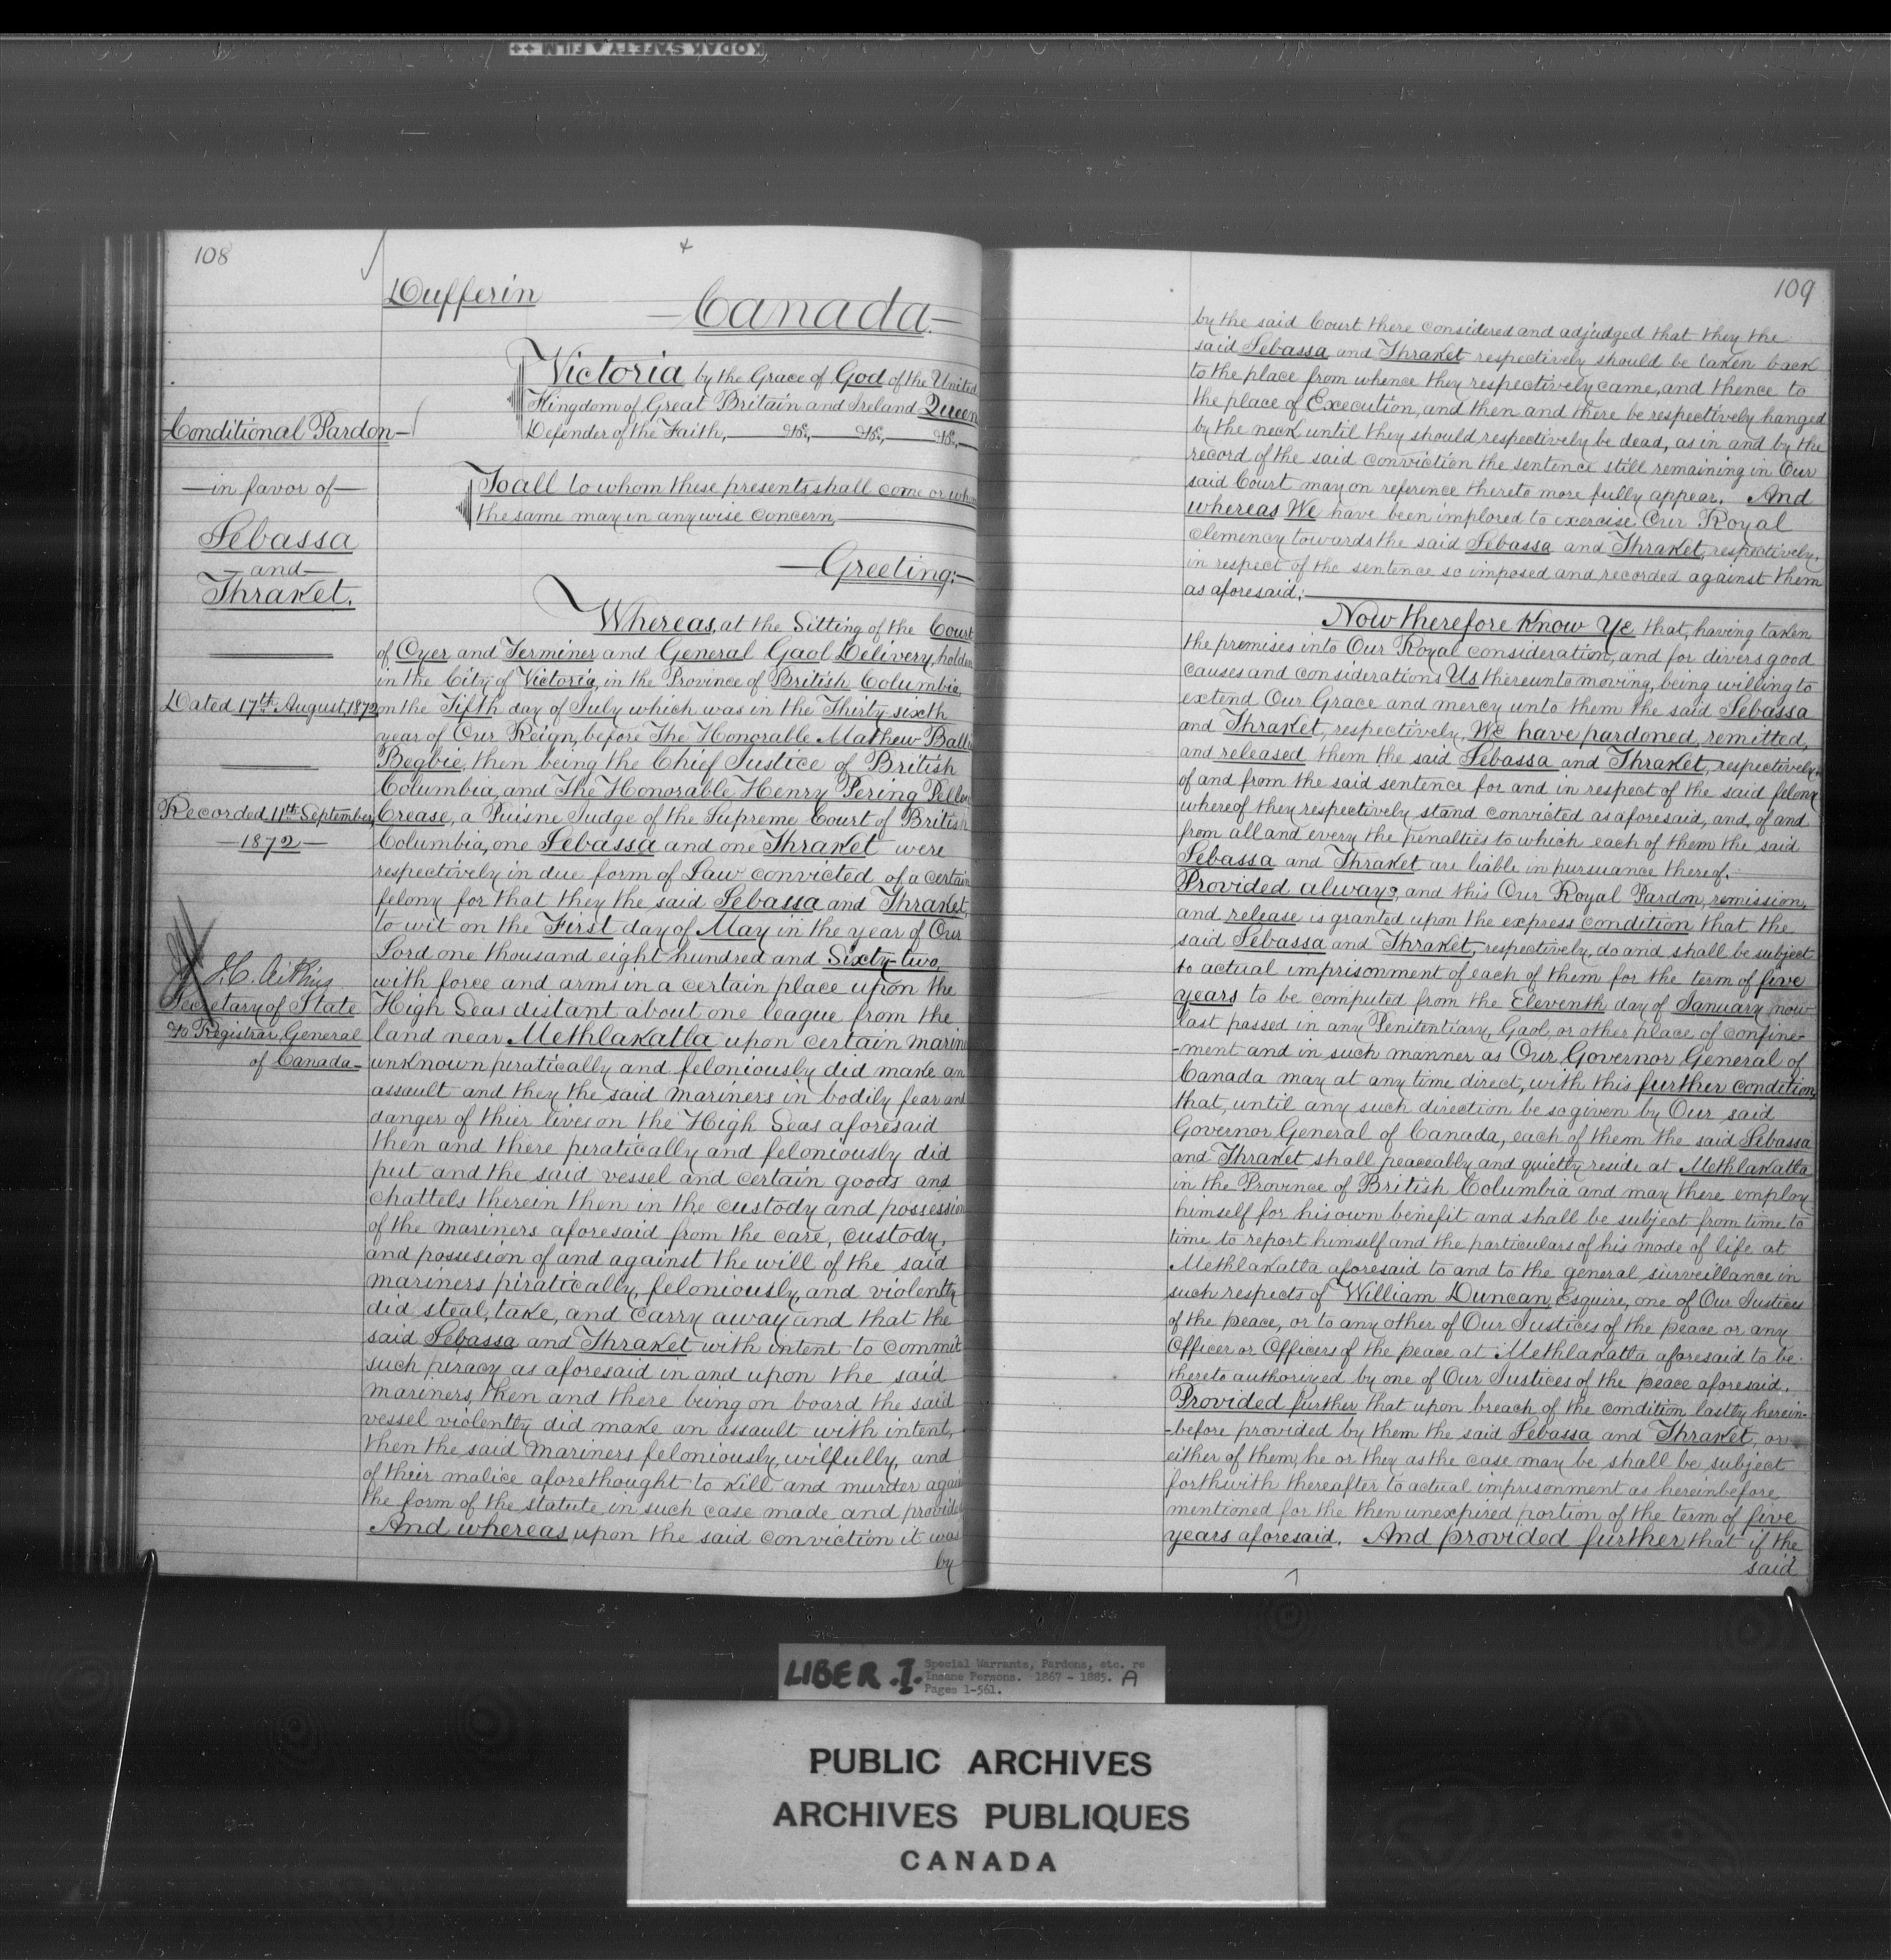 KODAK SAFETY FILM ++
108
Dufferin
Canada
Conditional Pardon
in favor of
Sebassa
and
Thraket.
Dated 17th August, 1872
Recorded 11th September,
1872
J. C. Aikins
Secretary of State
& Registrar General
of Canada
Victoria, by the Grace of God of the United
Kingdom of Great Britain and Ireland Queen
Defender of the Faith, &c, &c, &c,
To all to whom these presents shall come or whom
the same may in anywise concern,
Greeting:
Whereas, at the Sitting of the Court
of Oyer and Terminer and General Gaol Delivery, holden
in the City of Victoria, in the Province of British Columbia,
on the Fifth day of July which was in the Thirty sixth
year of Our Reign, before The Honorable Mathew Ballie
Begbie, then being the Chief Justice of British
Columbia, and The Honorable Henry Pering Pellew
Crease, a Puisne Judge of the Supreme Court of British
Columbia, one Sebassa and one Thraket were
respectively in due form of Law convicted of a certain
felony for that they the said Sebassa and Thraket,
to wit on the First day of May in the year of Our
Lord one thousand eight hundred and Sixty-two,
with force and arms in a certain place upon the
High Seas distant about one league from the
land near Methlakatla upon certain marine
unknown piratically and feloniously did make an
assault and they the said mariners in bodily fear and
danger of thier lives on the High Seas aforesaid
then and there piratically and feloniously did
put and the said vessel and certain goods and
chattels therein then in the custody and possession
of the mariners aforesaid from the care, custody,
and possesion of and against the will of the said
mariners piratically, feloniously, and violently
did steal, take, and carry away and that the
said Sebassa and Thraket with intent to commit
such piracy as aforesaid in and upon the said
mariners, then and there being on board the said
vessel violently did make an assault with intent,
then the said mariners feloniously, wilfully, and
of their malice aforethought to kill and murder again
the form of the statute in such case made and provided
And whereas upon the said conviction it was
by
109
by the said Court there considered and adjudged that they the
said Sebassa and Thraket respectively should be taken back
to the place from whence they respectively came, and thence to
the place of Execution, and then and there be respectively hanged
by the neck until they should respectively be dead, as in and by the
record of the said conviction the sentence still remaining in Our
said Court may on reference thereto more fully appear. And
whereas We have been implored to exercise Our Royal
clemency towards the said Sebassa and Thraket, respectively,
in respect of the sentence so imposed and recorded against them
as aforesaid;
Now therefore Know Ye that, having taken
the premises into Our Royal consideration, and for divers good
causes and considerations Us thereunto moving, being willing to
extend Our Grace and mercy unto them the said Sebassa
and Thraket, respectively, We have pardoned, remitted,
and released them the said Sebassa and Thraket, respectively
of and from the said sentence for and in respect of the said felony
whereof they respectively stand convicted as aforesaid, and, of and
from all and every the penalties to which each of them the said
Sebassa and Thraket are liable in pursuance thereof.
Provided always, and this Our Royal Pardon, remission,
and release is granted upon the express condition that the
said Sebassa and Thraket, respectively, do and shall be subject
to actual imprisonment of each of them for the term of five
years to be computed from the Eleventh day of January now
last passed in any Penitentiary, Gaol, or other place of confine-
-ment and in such manner as Our Governor General of
Canada may at any time direct, with this further condition,
that, until any such direction be so given by Our said
Governor General of Canada, each of them the said Sebassa
and Thraket shall peaceably and quietly reside at Methlakatla
in the Province of British Columbia and may there employ
himself for his own benefit and shall be subject from time to
time to report himself and the particulars of his mode of life at
Methlakatla aforesaid to and to the general surveillance in
such respects of William Duncan, Esquire, one of Our Justices
of the peace, or to any other of Our Justices of the peace or any
Officer or Officers of the peace at Methlakatla aforesaid to be
thereto authorized by one of Our Justices of the peace aforesaid.
Provided further that upon breach of the condition lastly herein-
-before provided by them the said Sebassa and Thraket, or
either of them, he or they as the case may be shall be subject
forthwith thereafter to actual imprisonment as hereinbefore
mentioned for the then unexpired portion of the term of five
years aforesaid. And provided further that if the
said
LIBER. I. Special Warrants, Pardons, etc. re
Insane Persons. 1867 - 1885. A
Pages 1-561.
PUBLIC ARCHIVES
ARCHIVES PUBLIQUES
CANADA